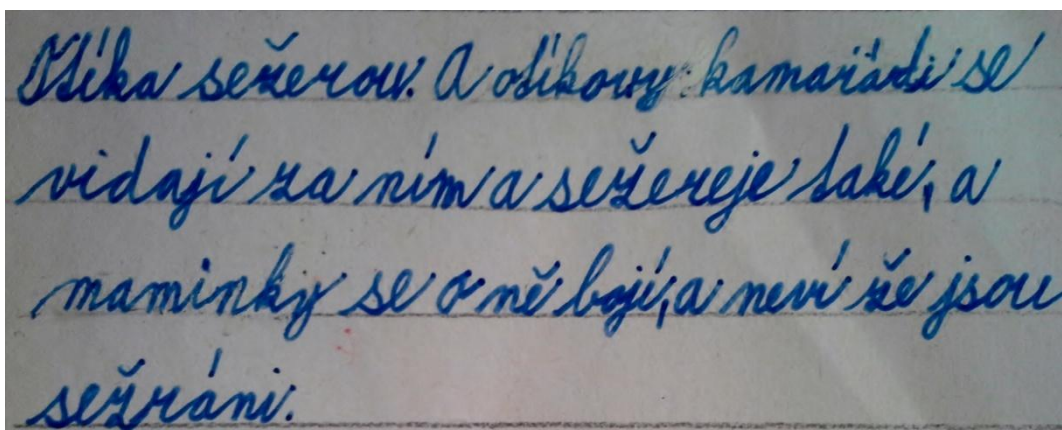 Otíka sežerou. A otíkovy kamarádi se
vidají za ním a sežereje také, a
maminky se o ně bojí, a neví že jsou
sežráni.